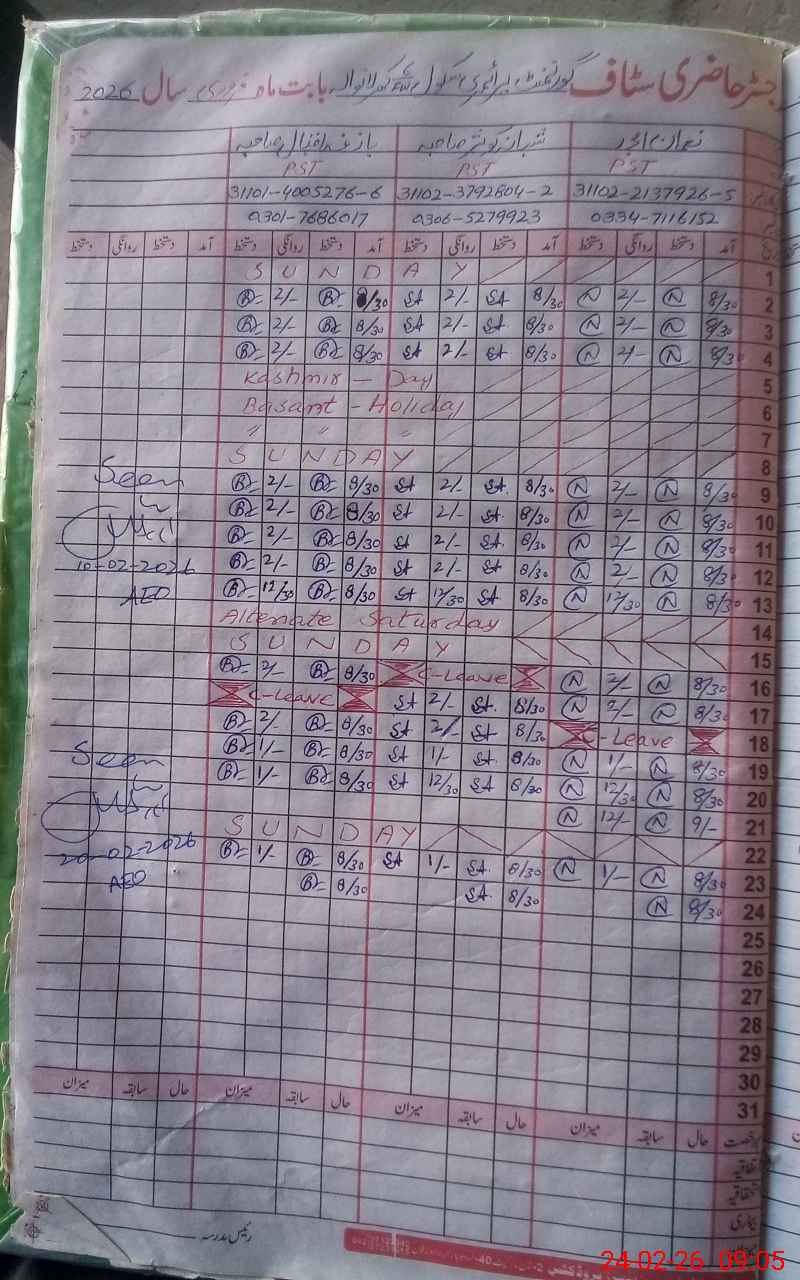 رجسٹر حاضری سٹاف گورنمنٹ پرائمری سکول بابت ماہ فروری سال 2026
نعمان احمد شبانہ کوثر صاحبہ بازغہ اقبال صاحبہ
PST PST PST
31102-2137926-5 31102-3792804-2 31101-4005276-6
0334-7116152 0306-5279923 0301-7686017
آمد دستخط روانگی دستخط آمد دستخط روانگی دستخط آمد دستخط روانگی دستخط آمد دستخط روانگی دستخط
SUNDAY 1
B 2/- B 8/30 SA 2/- SA 8/30 N 2/- N 8/30 2
B 2/- B 8/30 SA 2/- SA 8/30 N 2/- N 8/30 3
B 2/- B 8/30 SA 2/- SA 8/30 N 2/- N 8/30 4
Kashmir - Day 5
Basant - Holiday 6
" " " 7
SUNDAY 8
Seen B 2/- B 8/30 SA 2/- SA 8/30 N 2/- N 8/30 9
B 2/- B 8/30 SA 2/- SA 8/30 N 2/- N 8/30 10
B 2/- B 8/30 SA 2/- SA 8/30 N 2/- N 8/30 11
10-02-2026 B 2/- B 8/30 SA 2/- SA 8/30 N 2/- N 8/30 12
AEO B 12/30 B 8/30 SA 12/30 SA 8/30 N 12/30 N 8/30 13
Alternate Saturday 14
SUNDAY 15
B 2/- B 8/30 C-Leave N 2/- N 8/30 16
C-Leave SA 2/- SA 8/30 N 2/- N 8/30 17
B 2/- B 8/30 SA 2/- SA 8/30 -Leave 18
Seen B 1/- B 8/30 SA 1/- SA 8/30 N 1/- N 8/30 19
B 1/- B 8/30 SA 12/30 SA 8/30 N 12/30 N 8/30 20
N 12/- N 9/- 21
20-02-2026 SUNDAY 22
AEO B 1/- B 8/30 SA 1/- SA 8/30 N 1/- N 8/30 23
B 8/30 SA 8/30 N 8/30 24
25
26
27
28
29
30
31
رخصت حال سابقہ میزان حال سابقہ میزان حال سابقہ میزان حال سابقہ میزان
اتفاقیہ
استحقاقیہ
بیماری
رئیس مدرسہ
24 02 26 09:05